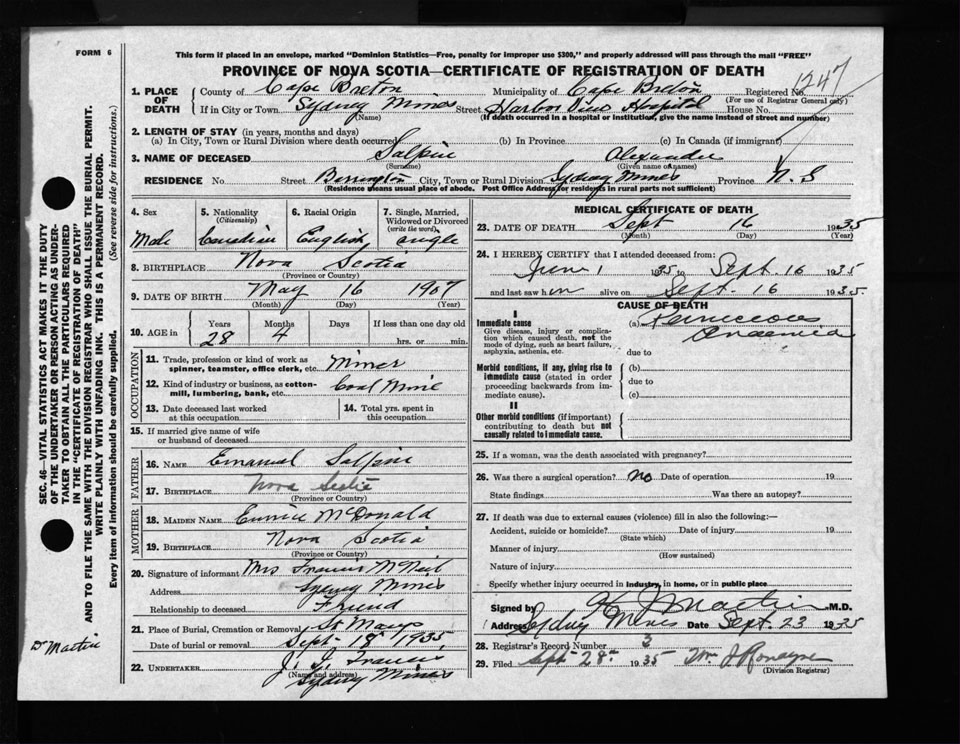 FORM 6
This form if placed in an envelope, marked "Dominion Statistics—Free, penalty for improper use $300," and properly addressed will pass through the mail "FREE"
PROVINCE OF NOVA SCOTIA—CERTIFICATE OF REGISTRATION OF DEATH
1247
1. PLACE OF DEATH County of Cape Breton Municipality of Cape Breton Registered No.
(For use of Registrar General only)
If in City or Town Sydney Mines Street Harbor View Hospital House No.
(Name) (If death occurred in a hospital or institution, give the name instead of street and number)
2. LENGTH OF STAY (in years, months and days)
(a) In City, Town or Rural Division where death occurred (b) In Province (c) In Canada (if immigrant)
3. NAME OF DECEASED Salpin Alexander
(Surname) (Given name or names)
RESIDENCE No. Street City, Town or Rural Division Sydney Mines Province N.S
(Residence means usual place of abode. Post Office Address for residents in rural parts not sufficient)
4. Sex
Male
5. Nationality
(Citizenship)
Canadian
6. Racial Origin
English
7. Single, Married, Widowed or Divorced
(write the word)
single
8. BIRTHPLACE Nova Scotia
(Province or Country)
9. DATE OF BIRTH May 16 1907
(Month) (Day) (Year)
10. AGE in Years Months Days If less than one day old
28 4 hrs. or min.
OCCUPATION
11. Trade, profession or kind of work as spinner, teamster, office clerk, etc. Miner
12. Kind of industry or business, as cotton-mill, lumbering, bank, etc. Coal Mine
13. Date deceased last worked at this occupation
14. Total yrs. spent in this occupation
15. If married give name of wife or husband of deceased
FATHER
16. NAME Emanuel Salpin
17. BIRTHPLACE Nova Scotia
(Province or Country)
MOTHER
18. MAIDEN NAME Eunice McDonald
19. BIRTHPLACE Nova Scotia
(Province or Country)
20. Signature of informant Mrs Francis McNeil
Address Sydney Mines
Relationship to deceased Friend
21. Place of Burial, Cremation or Removal St Marys
Date of burial or removal Sept 18 1935
22. UNDERTAKER J. S. Francis
(Name and address)
Sydney Mines
MEDICAL CERTIFICATE OF DEATH
23. DATE OF DEATH Sept 16 1935
(Month) (Day) (Year)
24. I HEREBY CERTIFY that I attended deceased from:
June 1 1935 to Sept. 16 1935
and last saw him alive on Sept. 16 1935.
CAUSE OF DEATH
I
Immediate cause
Give disease, injury or complication which caused death, not the mode of dying, such as heart failure, asphyxia, asthenia, etc.
(a) Pernicious Anaemia
due to
Morbid conditions, if any, giving rise to immediate cause (stated in order proceeding backwards from immediate cause).
(b)
due to
(c)
II
Other morbid conditions (if important) contributing to death but not causally related to immediate cause.
25. If a woman, was the death associated with pregnancy?
26. Was there a surgical operation? No Date of operation 19
State findings Was there an autopsy?
27. If death was due to external causes (violence) fill in also the following:—
Accident, suicide or homicide? Date of injury 19
(State which)
Manner of injury
(How sustained)
Nature of injury
Specify whether injury occurred in industry, in home, or in public place
Signed by Martin M.D.
Address Sydney Mines Date Sept. 23 1935
28. Registrar's Record Number 3
29. Filed Sept 28 1935 Wm J Ronayne
(Division Registrar)
SEC. 46—VITAL STATISTICS ACT MAKES IT THE DUTY
OF THE UNDERTAKER OR PERSON ACTING AS UNDER-
TAKER TO OBTAIN ALL THE PARTICULARS REQUIRED
IN THE "CERTIFICATE OF REGISTRATION OF DEATH"
AND TO FILE THE SAME WITH THE DIVISION REGISTRAR WHO SHALL ISSUE THE BURIAL PERMIT.
WRITE PLAINLY WITH UNFADING INK. THIS IS A PERMANENT RECORD.
Every item of information should be carefully supplied. (See reverse side for instructions.)
Dr Martin